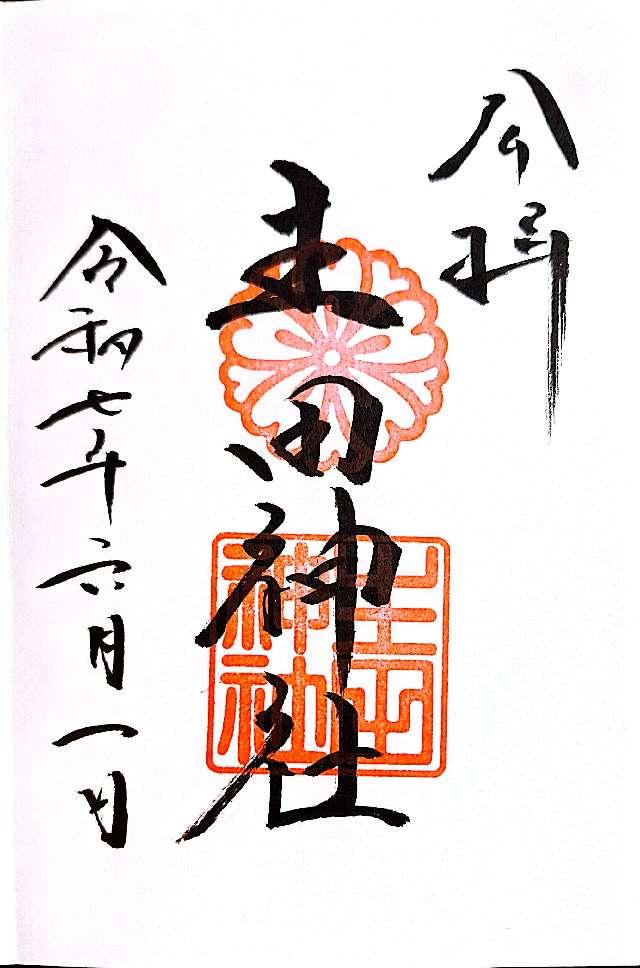 奉拝
生田神社
令和七年六月一日
生田神社